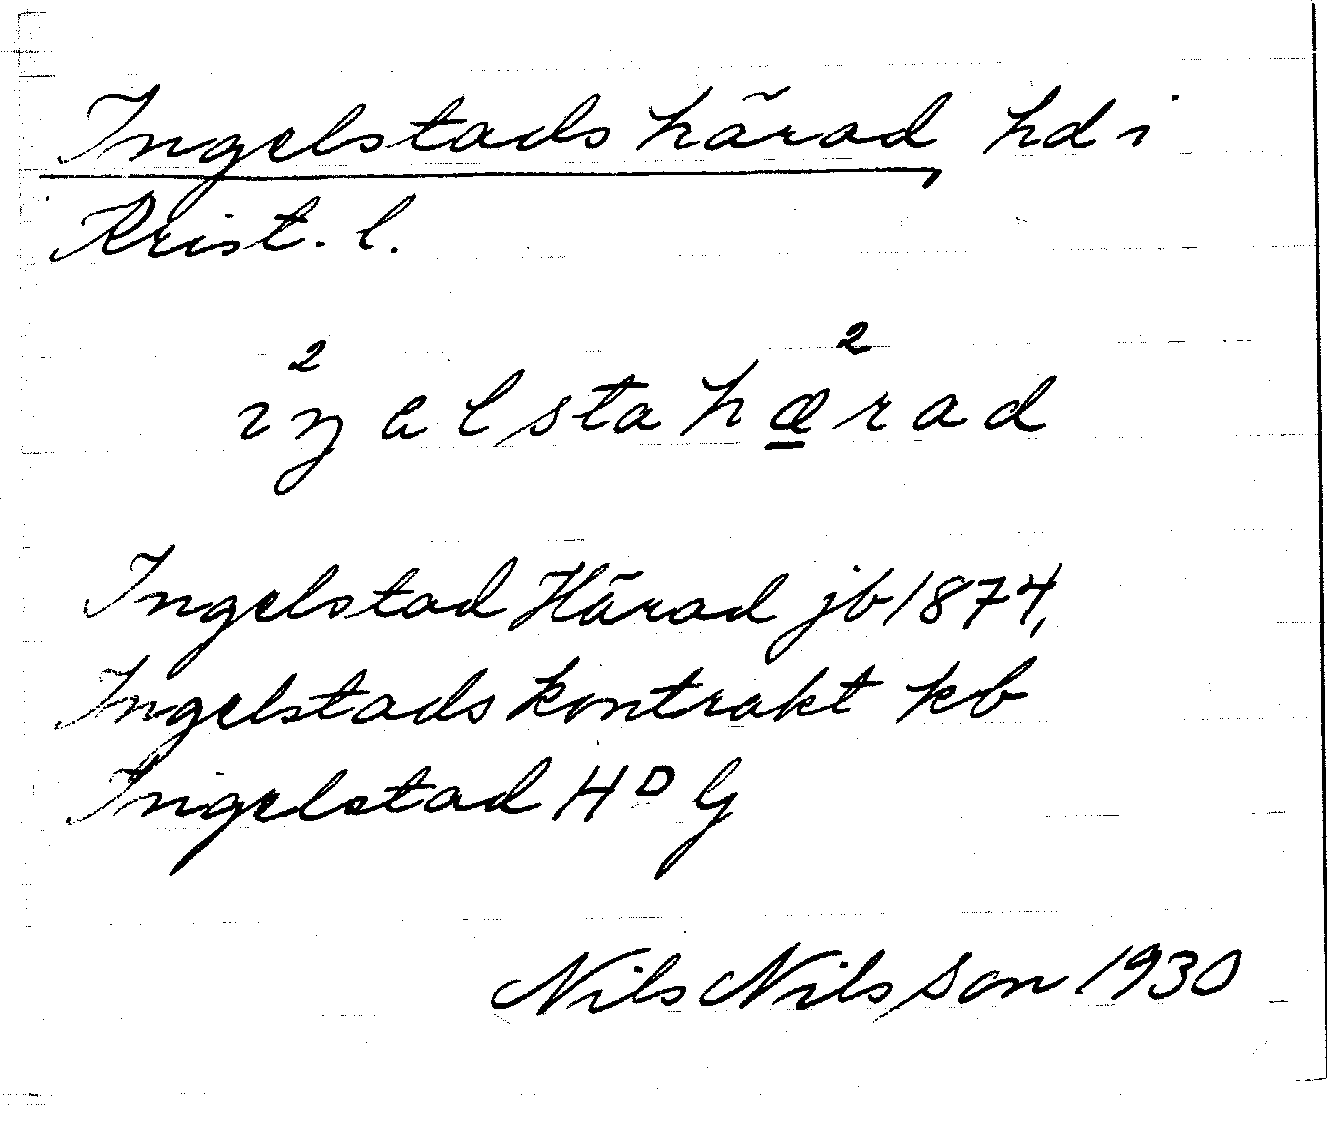 Ingelstads härad, hd i
Krist. l.
ıŋ²ɐlstahæ̲²rad
Ingelstad Härad jb 1874,
Ingelstads kontrakt kb
Ingelstad Hᴰ G
Nils Nilsson 1930